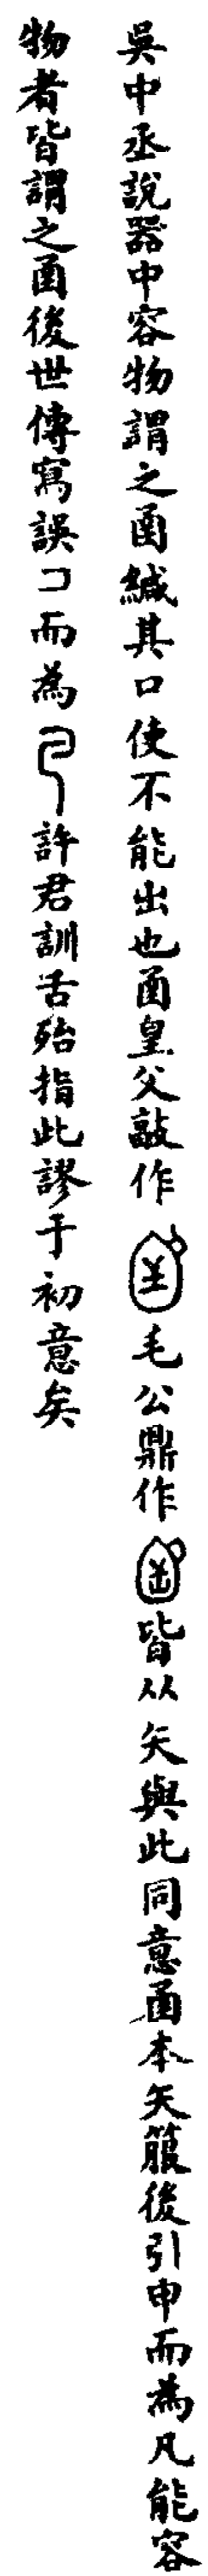 吳中丞說器中容物謂之圅緘其口使不能出也圅皇父敦作毛公鼎作皆从矢與此同意圅本矢箙後引申而為凡能容
物者皆謂之圅後世傳寫誤コ而為㔾許君訓舌殆指此謬于初意矣